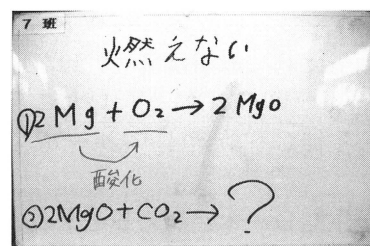 7 班
燃えない
①2Mg + O₂ → 2MgO
酸化
②2MgO+CO₂→ ?